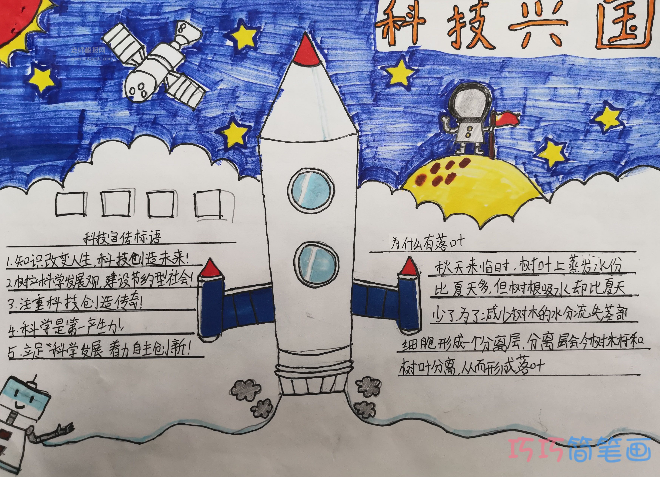 科技兴国
科技宣传标语
1.知识改变人生,科技创造未来!
2.树立科学发展观,建设节约型社会!
3.注重科技创造传奇!
4.科学是第一生产力!
5.立足"科学发展 着力自主创新!
为什么有落叶
秋天来临时,树叶上蒸发水份
比夏天多,但树根吸水却比夏天
少了.为了减少树木的水分流失茎部
细胞形成一个分离层,分离层会令树木杆和
树叶分离,从而形成落叶
巧巧简笔画